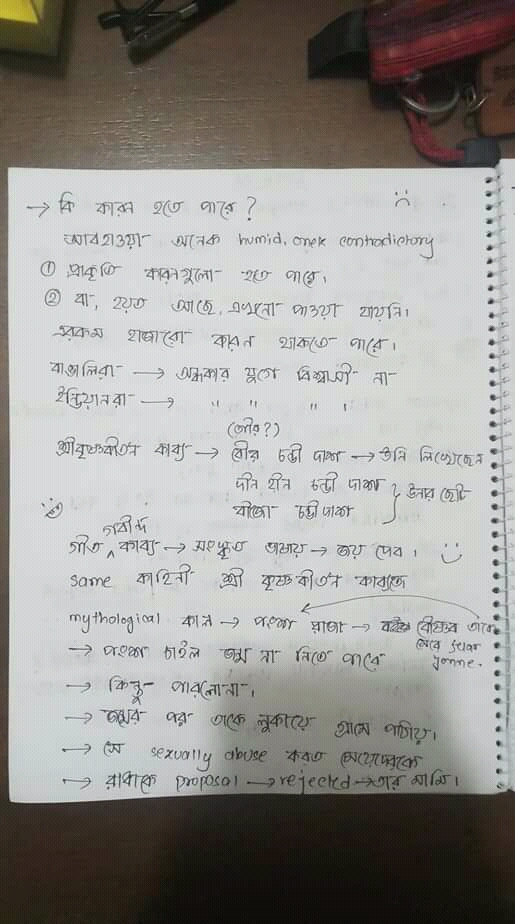 → কি কারন হতে পারে?
আবহাওয়া অনেক humid, contradictory
① প্রাকৃতি কারনগুলো হতে পারে।
② বা, হয়ত আছে, এখনো পাওয়া যায়নি।
এরকম হাজারো কারন থাকতে পারে।
বাঙালিরা → অন্ধকার যুগে বিশ্বাসী না
ইন্ডিয়ানরা → " " " " ।
শ্রীকৃষ্ণকীর্তন কাব্য → চন্ডী দাশ → উনি লিখেছেন
দীন হীন চন্ডী দাশ
চন্ডী দাশ
গীত গবীন্দ কাব্য → সংস্কৃত ভাষায় → জয় দেব।
same কাহিনী শ্রী কৃষ্ণ কীর্তন কাব্যজে
mythological কাল → পংশ রাজা →
→ পংশ চাইল জন্ম না নিতে পারে
→ কিন্তু পারলোনা।
→ জন্মের পর তাকে লুকায়ে গ্রামে পাঠায়।
→ সে sexually abuse করত মেয়েদেরকে
→ রাধাকে proposal → rejected → তার মামি।